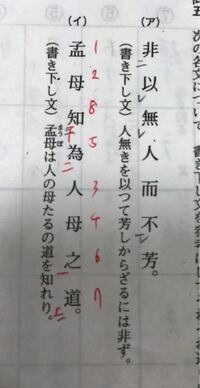 五 次の各文について
(ア) 非以無人而不芳。
(書き下し文) 人無きを以つて芳しからざるには非ず。
(イ) 孟母知為人母之道。
1 2 8 5 3 4 6 7
(書き下し文) 孟母は人の母たるの道を知れり。
まうぼ